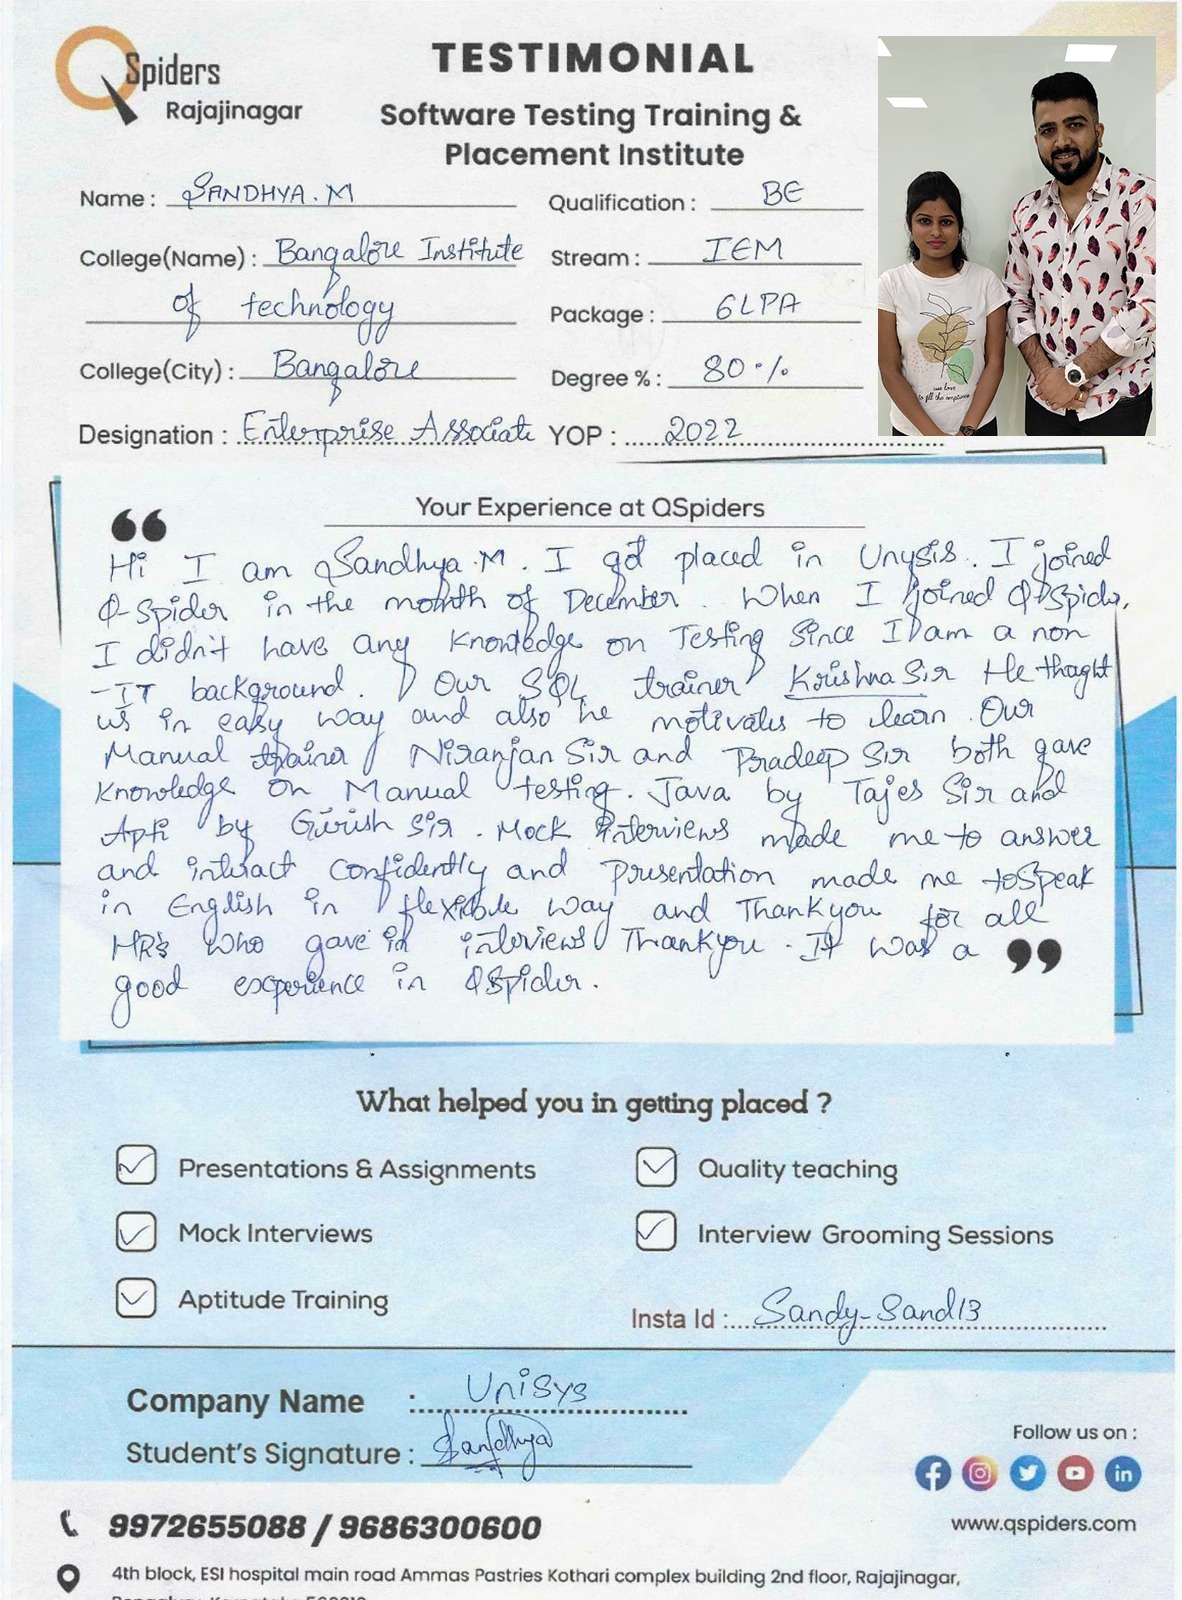 QSpiders
Rajajinagar
TESTIMONIAL
Software Testing Training &
Placement Institute
Name : SANDHYA.M
Qualification : BE
College(Name) : Bangalore Institute
of technology
Stream : IEM
Package : 6LPA
College(City) : Bangalore
Degree % : 80%
Designation : Enterprise Associate
YOP : 2022
we love
to fill the emptiness
Your Experience at QSpiders
“
Hi I am Sandhya.M. I got placed in Unysis. I joined
Q-Spider in the month of December. When I joined Q-Spider,
I didn't have any Knowledge on Testing Since I am a non
-IT background. Our SQL trainer Krishna Sir He thaght
us in easy way and also he motivates to learn. Our
Manual trainer Niranjan Sir and Pradeep Sir both gave
Knowledge on Manual testing. Java by Tajes Sir and
Apti by Girish Sir. Mock interviews made me to answer
and interact Confidently and Presentation made me to Speak
in English in flexible way and Thankyou for all
HR's who gave in interviews Thankyou. It was a
good experience in QSpider.
”
What helped you in getting placed ?
Presentations & Assignments
Quality teaching
Mock Interviews
Interview Grooming Sessions
Aptitude Training
Insta Id : Sandy-Sand13
Company Name : Unisys
Student's Signature : Sandhya
Follow us on :
9972655088 / 9686300600
www.qspiders.com
4th block, ESI hospital main road Ammas Pastries Kothari complex building 2nd floor, Rajajinagar,